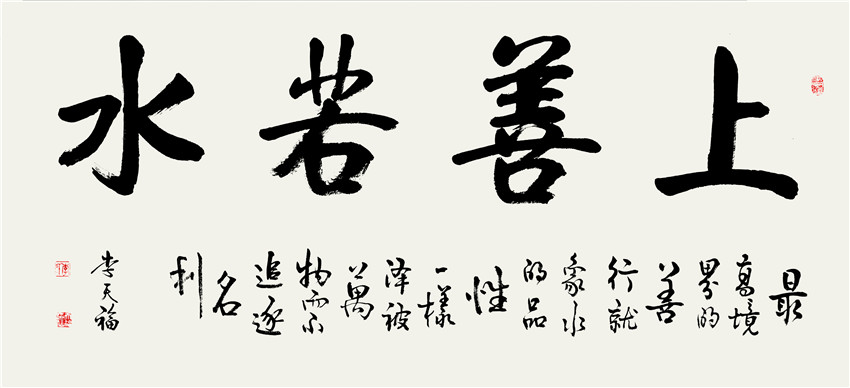 上善若水
最
高境
界的
善
行就
象水
的品
性
一樣
泽被
萬
物而不
追逐
名
利
李天福